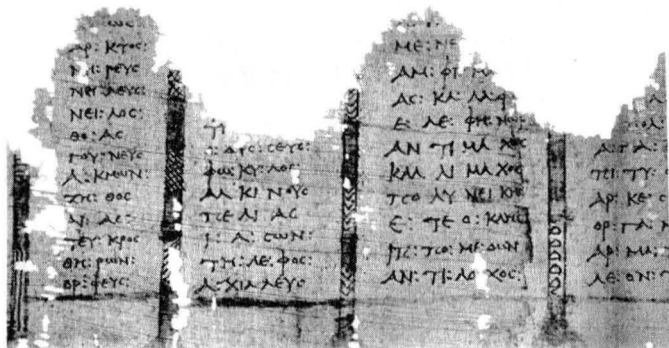 ΩC:
ΑΡ: ΚΤΟC:
ΝΗ: ΡΕΥC
ΝΕΙ: ΛΕΥC:
ΝΕΙ: ΛΟC:
ΘΟ: ΑC
ΓΟΥ: ΝΕΥC
Α: ΚΜΩΝ
ΖΗ: ΘΟC
ΑΙ: ΑC:
ΤΕΥ: ΚΡΟC
ΘΗ: ΡΩΝ:
ΟΡ: ΦΕΥC
Ο: ΔΥC: CΕΥC:
ΦΩ: ΚΥ: ΛΟC
ΑΛ ΚΙ ΝΟΥC
ΠΕ ΛΙ ΑC
Ι: Α: CΩΝ:
ΤΗ: ΛΕ: ΦΟC:
Α: ΧΙΛ ΛΕΥC
ΜΕ: ΝΕ
ΑΜ: ΦΙ
ΑC: ΚΑ ΛΑ Φ
Ε: ΛΕ: ΦΗ: ΝΩΡ
ΑΝ ΤΙ ΜΑ ΧΟC
ΚΑΛ ΛΙ ΜΑ ΧΟC:
ΠΟ ΛΥ ΝΕΙ ΚΗC
Ε: ΤΕ Ο: ΚΛΗC
ΙΠ: ΠΟ: ΜΕ: ΔΩΝ
ΑΝ: ΤΙ: ΛΟ ΧΟC:
Α: ΓΑ:
ΠΙ: ΤΥ:
ΑΡ: ΚΕ: C
ΟΡ: ΓΑ:
ΑΡ: ΜΑ:
ΛΕ: ΟΝ: